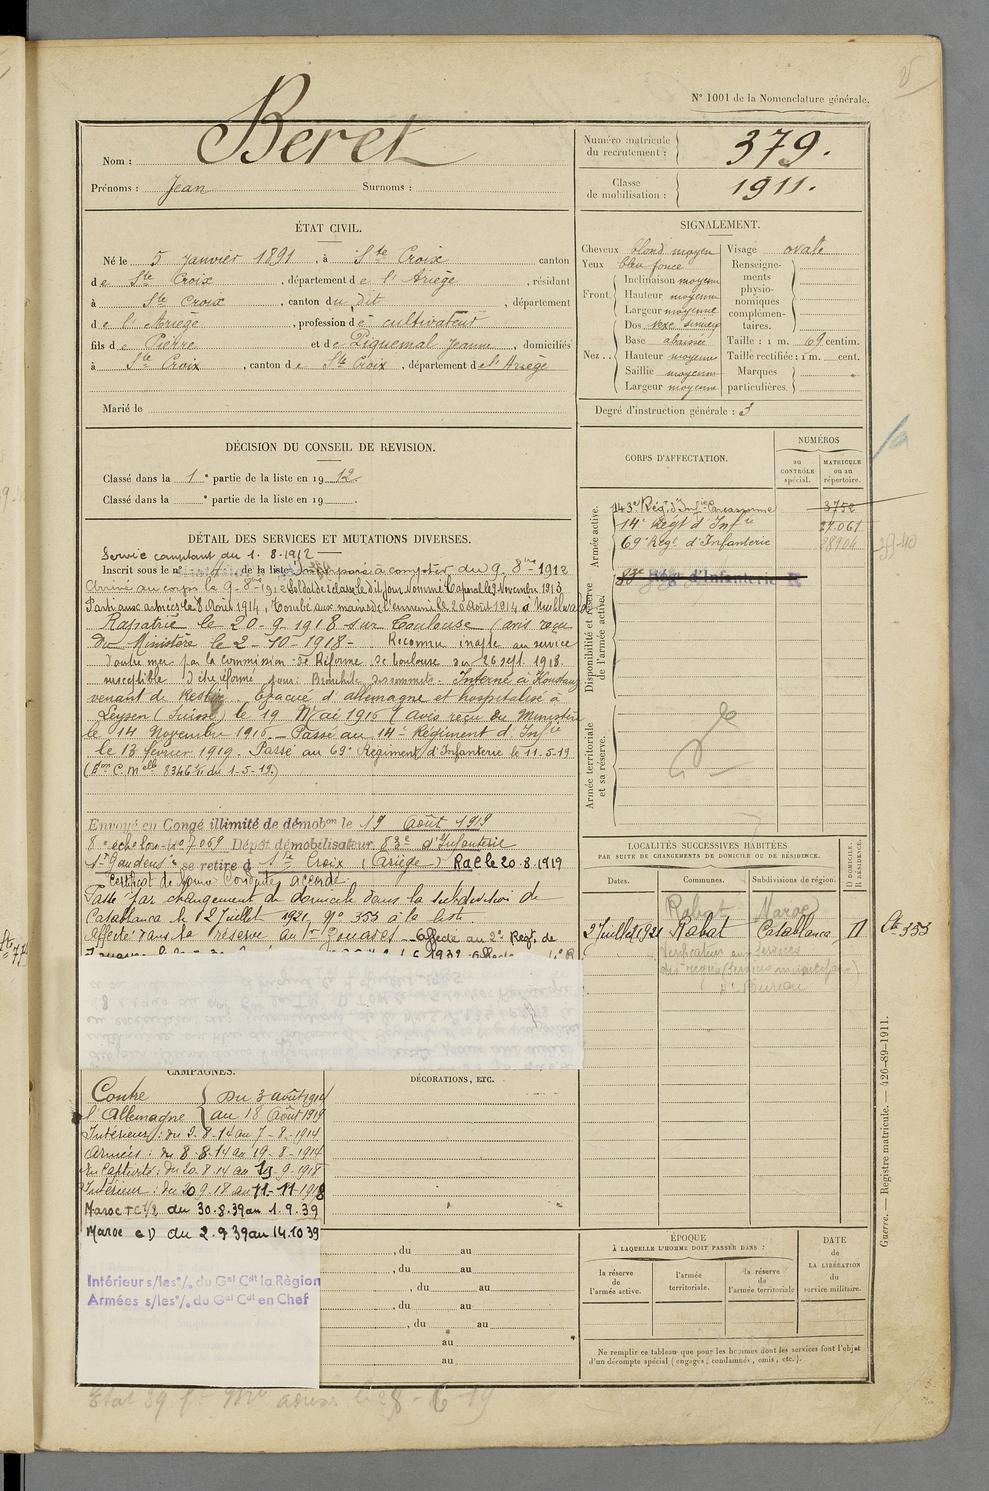 N° 1001 de la Nomenclature générale.
Nom : Beret
Prénoms : Jean Surnoms :
Numéro matricule du recrutement : 379.
Classe de mobilisation : 1911.
ÉTAT CIVIL.
Né le 5 janvier 1891, à Ste Croix canton
de Ste Croix, département de l'Ariège, résidant
à Ste Croix, canton du dit, département
de l'Ariège, profession de cultivateur
fils de Pierre et de Piquemal Jeanne, domiciliés
à Ste Croix, canton de Ste Croix, département de l'Ariège
Marié le
SIGNALEMENT.
Cheveux blond moyen
Yeux bleu foncé
Front Inclinaison moyenne
Hauteur moyenne
Largeur moyenne
Nez Dos
Base abaissée
Hauteur moyenne
Saillie moyenne
Largeur moyenne
Visage ovale
Renseignements physionomiques complémentaires.
Taille : 1 m. 69 centim.
Taille rectifiée : 1 m. cent.
Marques particulières.
Degré d'instruction générale : 3
DÉCISION DU CONSEIL DE REVISION.
Classé dans la 1e partie de la liste en 1912
Classé dans la e partie de la liste en 19
DÉTAIL DES SERVICES ET MUTATIONS DIVERSES.
Service comptant du 1.8.1912
Inscrit sous le n° de la liste Incorporé à compter du 9 8bre 1912
Arrivé au corps le 9 8bre 1912 Soldat de 2e classe le dit jour. Nommé Caporal le 9 Novembre 1913
Parti aux armées le 8 Août 1914. Tombé aux mains de l'ennemi le 20 Août 1914 à
Rapatrié le 20-9-1918 sur Toulouse (avis reçu
du Ministère le 2-10-1918- Reconnu inapte au service
d'outre mer par la Commission de Réforme de Toulouse du 26 sept. 1918.
susceptible d'être réformé pour : Bronchite Interné à
venant de Evacué d'allemagne et hospitalisé à
Leysen (Suisse) le 19 Mai 1916 (avis reçu du Ministère
le 14 Novembre 1916. - Passé au 14e Régiment d'Infie
le 13 février 1919. Passé au 69e Régiment d'Infanterie le 11-5-19
8346 du 1-5-19)
Envoyé en Congé illimité de démobon le 19 Août 1919
8e échelon n° 7069 Dépôt démobilisateur 83e d'Infanterie
St Gaudens se retire à Ste Croix (Ariège) RaC le 20.8.1919
Certificat de bonne Conduite accordé
Passé par changement de domicile dans la subdivision de
Casablanca le 12 Juillet 1921, N° 353 à la liste.
Affecté dans la réserve au 1er Zouaves - Affecté au 2e Régt. de
CORPS D'AFFECTATION.
NUMÉROS
au CONTRÔLE spécial.
MATRICULE ou au répertoire.
Armée active.
143e Régt d'Infie Carcassonne 3752
14e Régt d'Infie 27.061
69e Régt d'Infanterie 28904
Disponibilité et réserve de l'armée active.
83e Régt d'Infanterie
Armée territoriale et sa réserve.
LOCALITÉS SUCCESSIVES HABITÉES
PAR SUITE DE CHANGEMENTS DE DOMICILE OU DE RÉSIDENCE.
Dates. Communes. Subdivisions de région. D. DOMICILE. R. RÉSIDENCE.
Rabat Maroc
2 Juillet 1921 Rabat Casablanca D
Vérificateur aux Services
Bureau
Cta 353
CAMPAGNES.
Contre l'Allemagne du 3 août 1914 au 18 Août 1919
Intérieur : du 3-8-14 au 7-8-1914
Armées : du 8-8-14 au 19-8-1914
En Captivité : du 20.8.14 au 19-9-1918
Intérieur : du 20.9.18 au 11-11-1918
Maroc TC 1/2 du 30.8.39 au 1.9.39
Maroc du 2.9.39 au 14.10.39
Intérieur s/les o/. du Gal Cdt la Région
Armées s/les o/. du Gal Cdt en Chef
DÉCORATIONS, ETC.
, du au
, du au
, du au
, du au
, du au
au
au
ÉPOQUE
À LAQUELLE L'HOMME DOIT PASSER DANS :
la réserve de l'armée active.
l'armée territoriale.
la réserve de l'armée territoriale
DATE de LA LIBÉRATION du service militaire.
Ne remplir ce tableau que pour les hommes dont les services font l'objet
d'un décompte spécial (engagés, condamnés, omis, etc.).
Guerre. — Registre matricule. — 426-89-1911.